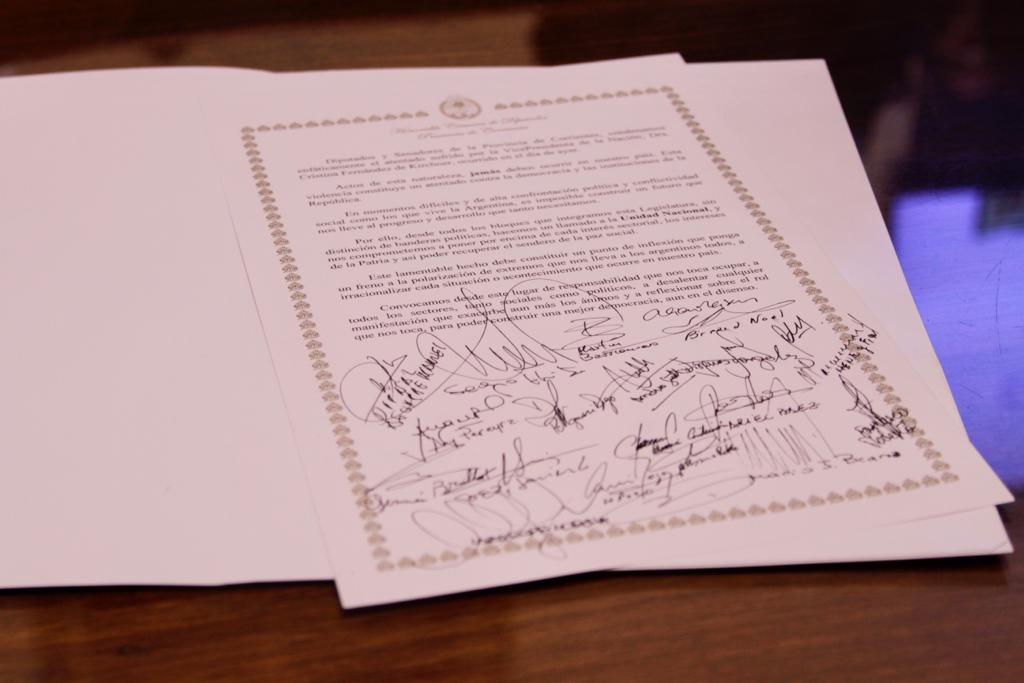 Honorable Cámara de Diputados
Provincia de Corrientes
Diputados y Senadores de la Provincia de Corrientes, condenamos
enfáticamente el atentado sufrido por la VicePresidenta de la Nación, Dra.
Cristina Fernández de Kirchner, ocurrido en el día de ayer.
Actos de esta naturaleza, jamás deben ocurrir en nuestro país. Esta
violencia constituye un atentado contra la democracia y las instituciones de la
República.
En momentos difíciles y de alta confrontación política y conflictividad
social como los que vive la Argentina, es imposible construir un futuro que
nos lleve al progreso y desarrollo que tanto necesitamos.
Por ello, desde todos los bloques que integramos esta Legislatura, sin
distinción de banderas políticas, hacemos un llamado a la Unidad Nacional, y
nos comprometemos a poner por encima de cada interés sectorial, los intereses
de la Patria y así poder recuperar el sendero de la paz social.
Este lamentable hecho debe constituir un punto de inflexión que ponga
un freno a la polarización de extremos que nos lleva a los argentinos todos, a
irracionalizar cada situación o acontecimiento que ocurre en nuestro país.
Convocamos desde este lugar de responsabilidad que nos toca ocupar, a
todos los sectores, tanto sociales como políticos, a desalentar cualquier
manifestación que exacerbe aun más los ánimos y a reflexionar sobre el rol
que nos toca, para poder construir una mejor democracia, aun en el disenso.
Brignd Noel
Pereyra
ARIEL BAEZ